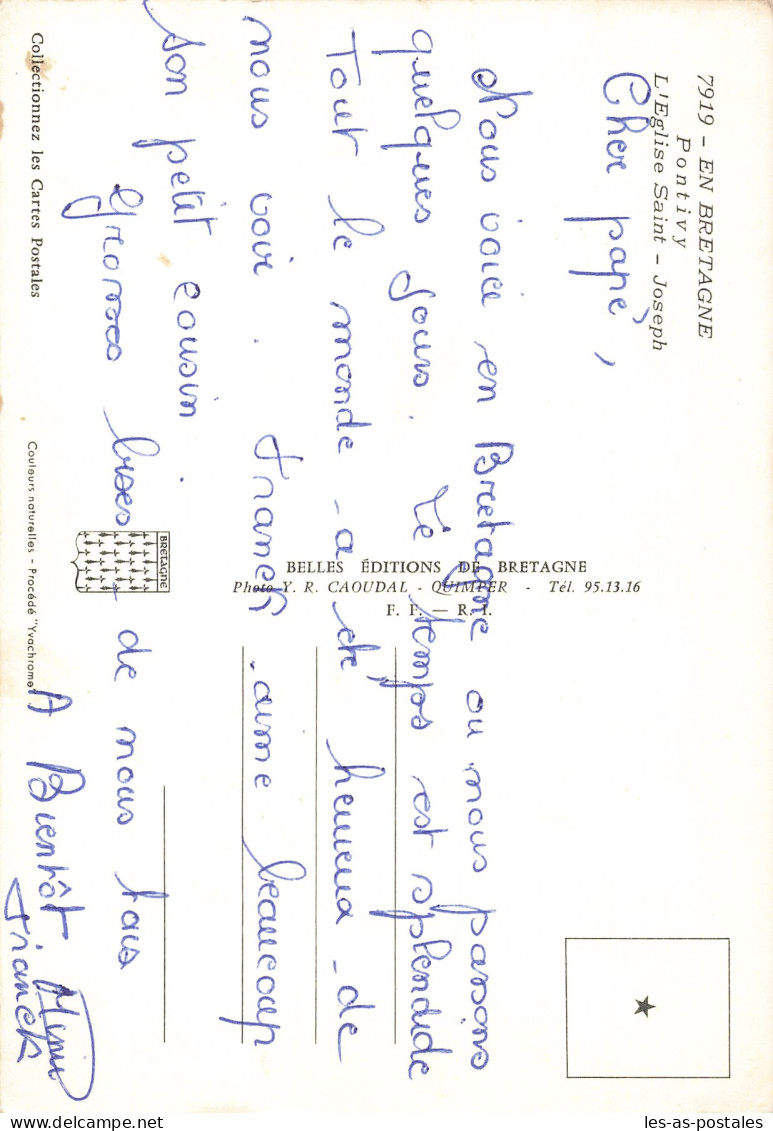 7919 - EN BRETAGNE
Pontivy
L'Eglise Saint - Joseph
Cher papé,
Nous voici en Bretagne ou nous passons
quelques jours. Le temps est splendide
Tout le monde a été heureux de
nous voir. Franck aime beaucoup
son petit cousin
Grosses bises de nous tous
A Bientôt. Mimi
Franck
BRETAGNE
BELLES ÉDITIONS DE BRETAGNE
Photo Y. R. CAOUDAL - QUIMPER - Tél. 95.13.16
F. F. — R. I.
Collectionnez les Cartes Postales
Couleurs naturelles - Procédé "Yvachrome"
les-as-postales